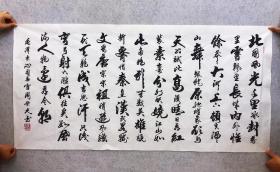 北国風光千里冰封
万里雪飘望長城内外惟
餘莽大河上下頓失滔
山舞銀蛇原馳蠟象欲与
天公試比高須晴日看红
装素裹分外妖娆江山如
此多嬌引無数英雄競
折腰惜秦皇漢武略輸
文采唐宗宋祖稍遜風騷
一代天驕成吉思汗只識
彎弓射大雕俱往矣数風
流人物還看今朝
毛澤東詞沁園春雪